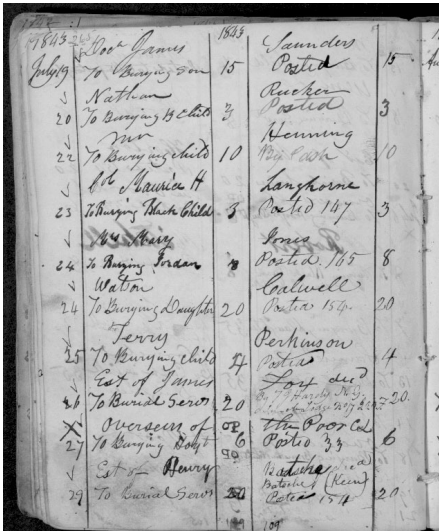 1843 Doct James 1843 Saunders
July 19 To Burying Son 15 Posted 15
Nathan Rucker
20 To Burying B Child 3 Posted 3
Mr Henning
22 To Burying child 10 By Cash 10
Col Maurice H Langhorne
23 To Burying Black Child 3 Posted 147 3
Mrs Mary Jones
24 To Burying Jordan 8 Posted 165 8
Watson Calwell
24 To Burying Daughter 20 Posted 154 20
Terry Perkinson
25 To Burying child 4 Posted 4
Est of James Fox decd
26 To Burial Servs 20 20
Overseers of OP the Poor
27 To Burying 6 Posted 33 6
Est of Henry
29 To Burial Servs 20 Posted 154 20
109